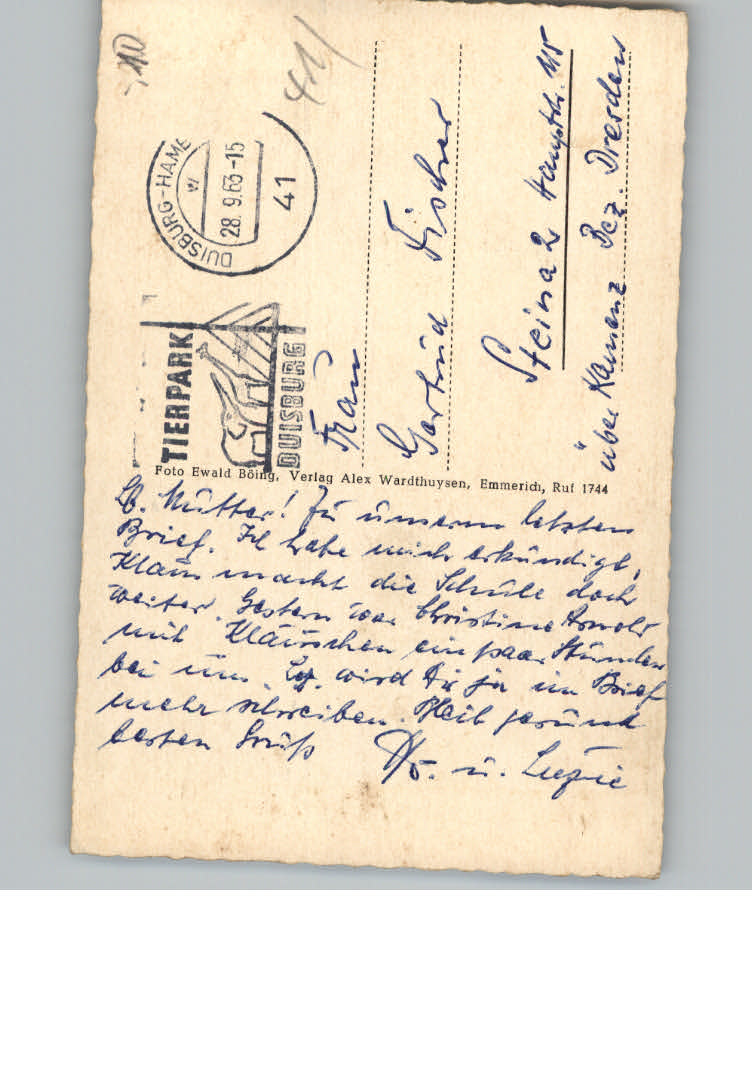 DUISBURG-HAM
28.9.63-15
41
TIERPARK
DUISBURG
Frau
Gertrud Fischer
Steina 2 Hauptstr. 115
über Kamenz Bez. Dresden
Foto Ewald Böing, Verlag Alex Wardthuysen, Emmerich, Ruf 1744
Lb. Mutter! Zu unserem letzten
Brief. Ich habe mich erkundigt,
Klaus macht die Schule doch
weiter. Gestern war Christine Arnold
mit Kläuschen ein paar Stunden
bei uns. wird Dir ja im Brief
mehr schreiben. Bleib gesund
besten Gruß u. Luzie